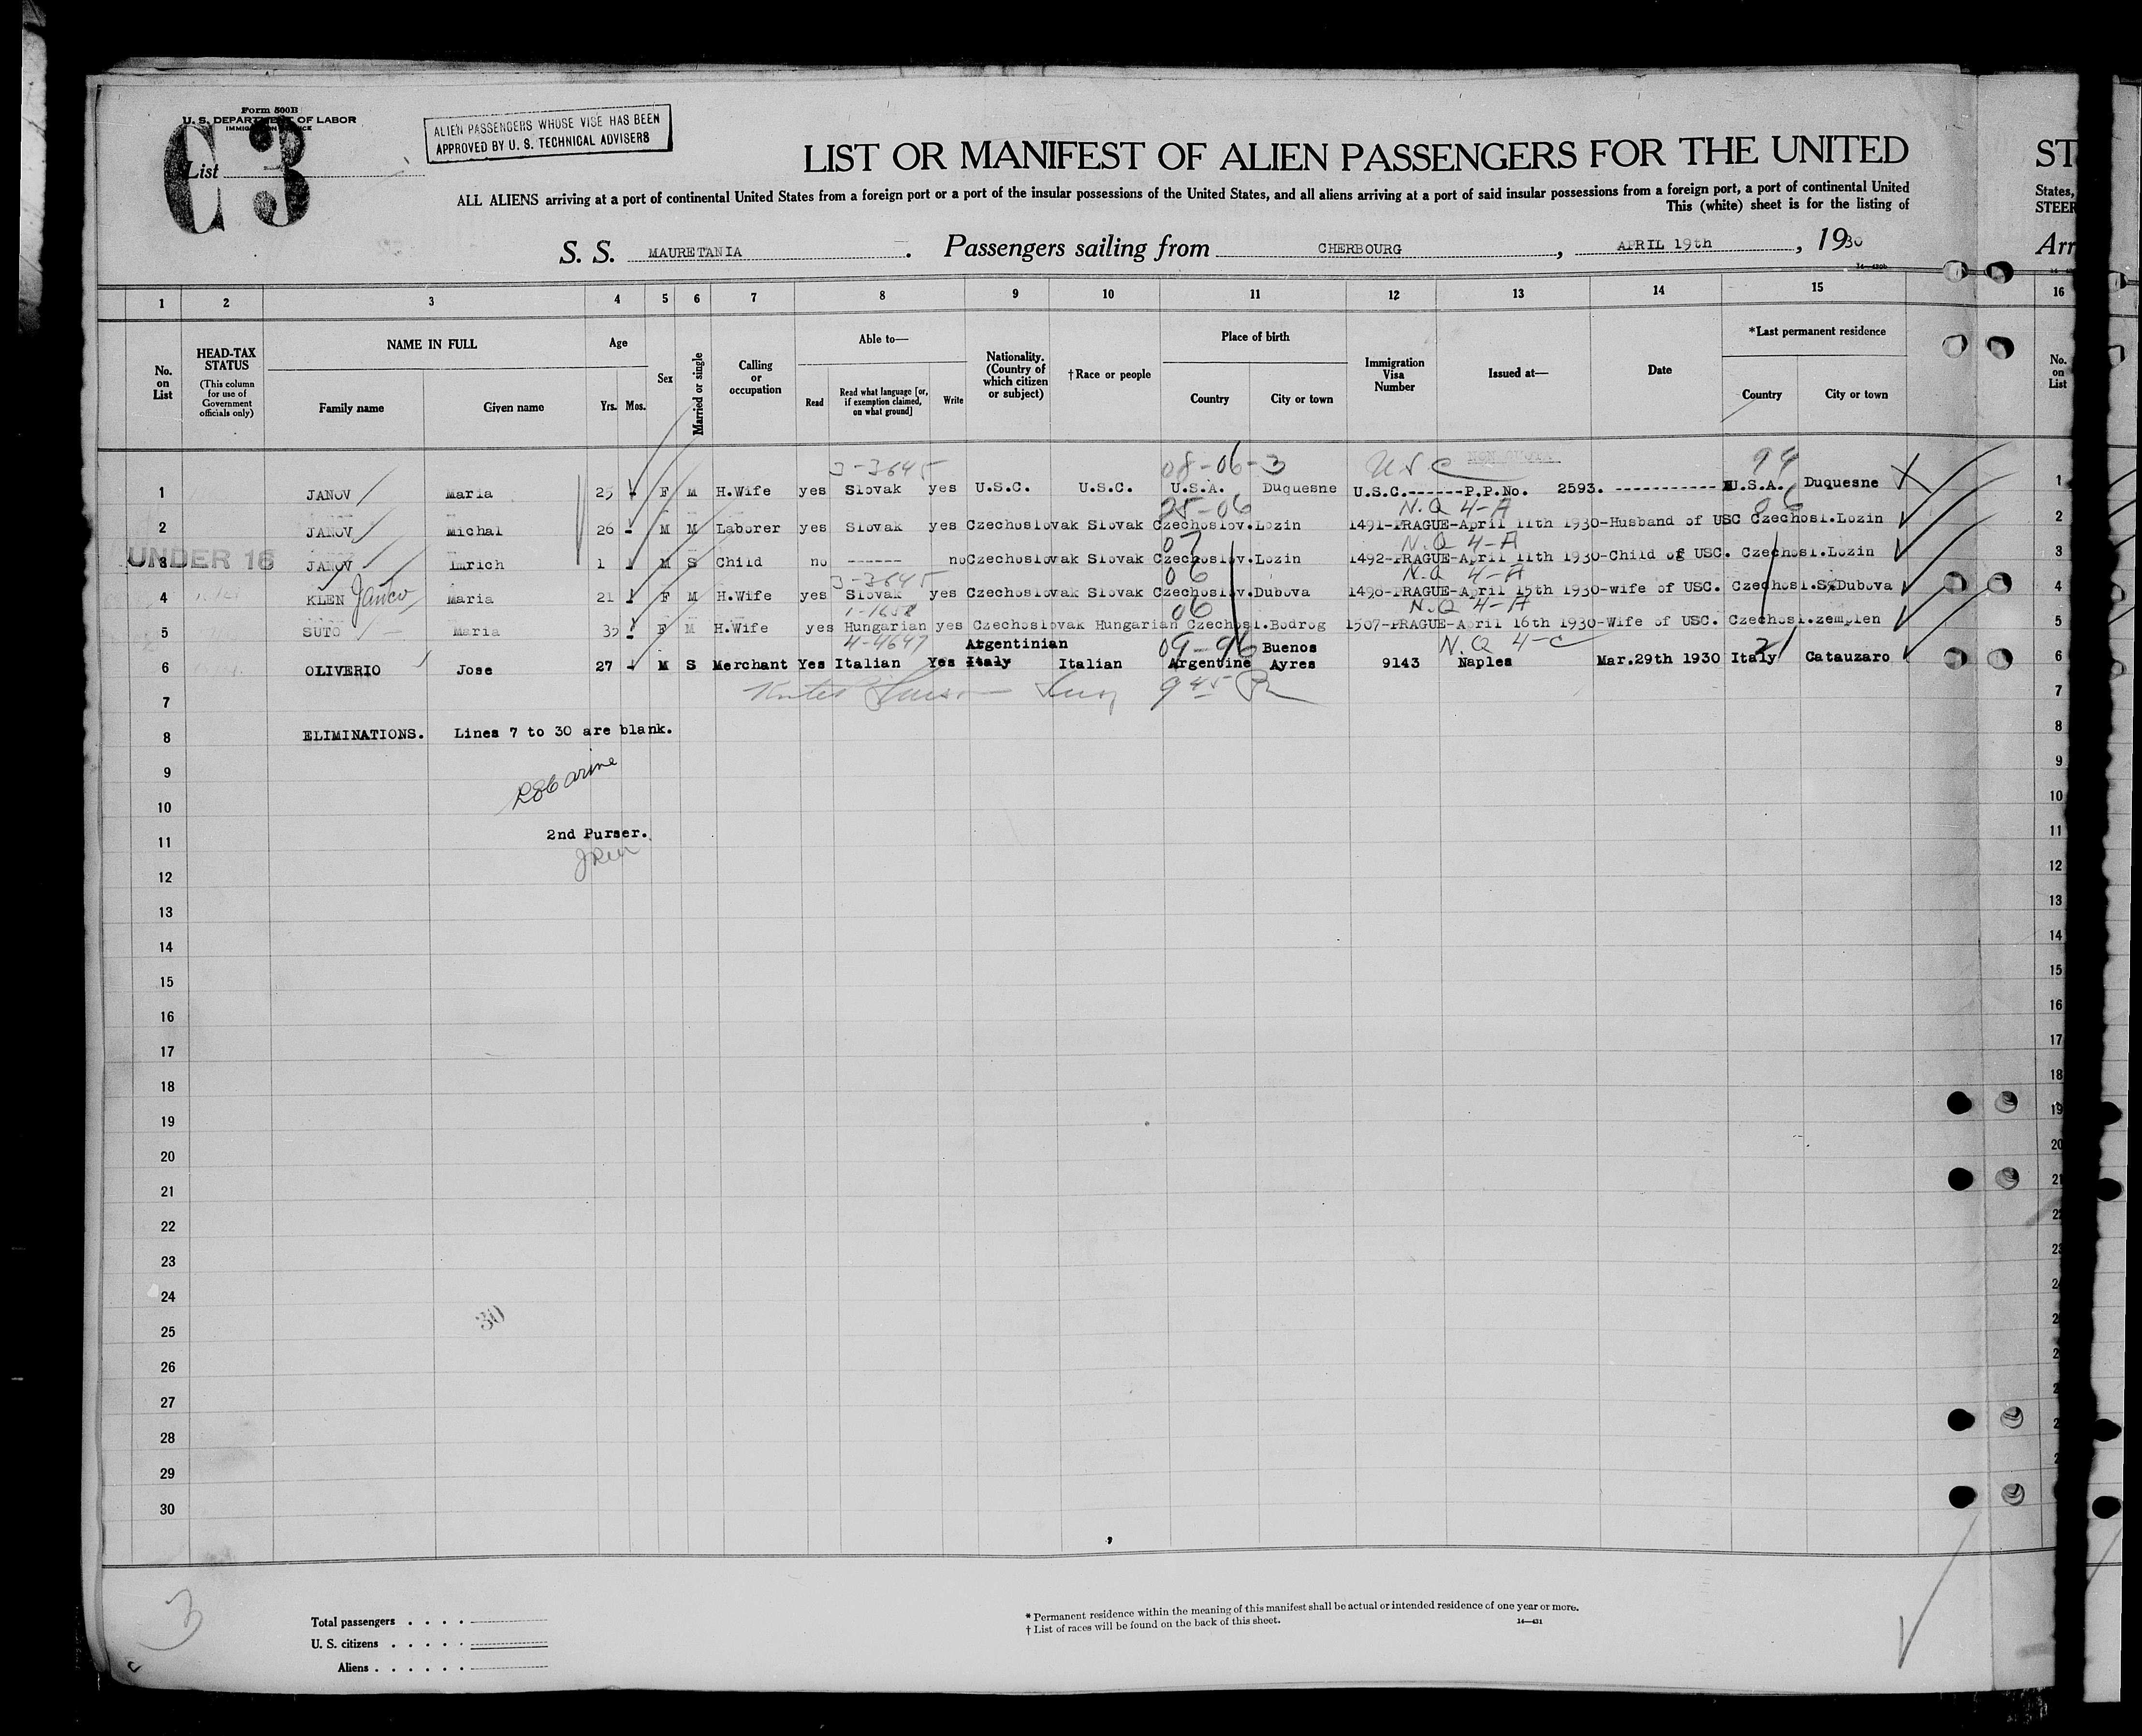 Form 500B
U. S. DEPARTMENT OF LABOR
IMMIGRATION SERVICE
C3
List
ALIEN PASSENGERS WHOSE VISE HAS BEEN
APPROVED BY U. S. TECHNICAL ADVISERS
LIST OR MANIFEST OF ALIEN PASSENGERS FOR THE UNITED
ALL ALIENS arriving at a port of continental United States from a foreign port or a port of the insular possessions of the United States, and all aliens arriving at a port of said insular possessions from a foreign port, a port of continental United
This (white) sheet is for the listing of
S. S. MAURETANIA. Passengers sailing from CHERBOURG, APRIL 19th, 1930
ST
States,
STEER
Arr
1 2 3 4 5 6 7 8 9 10 11 12 13 14 15 16
No. on List
HEAD-TAX STATUS
(This column for use of Government officials only)
NAME IN FULL
Family name Given name
Age
Yrs. Mos.
Sex
Married or single
Calling or occupation
Able to—
Read Read what language [or, if exemption claimed, on what ground] Write
Nationality. (Country of which citizen or subject)
†Race or people
Place of birth
Country City or town
Immigration Visa Number
Issued at—
Date
*Last permanent residence
Country City or town
No. on List
3-3645 08-06-3 USC NON QUOTA 94
1 JANOV Maria 25 - F M H.Wife yes Slovak yes U.S.C. U.S.C. U.S.A. Duquesne U.S.C.------P.P.No. 2593. ----------- U.S.A. Duquesne X 1
25-06 N.Q 4-A 06
2 JANOV Michal 26 - M M Laborer yes Slovak yes Czechoslovak Slovak Czechoslov.Lozin 1491-PRAGUE-April 11th 1930-Husband of USC Czechosl.Lozin 2
07 N.Q 4-A
UNDER 16
3 JANOV Imrich 1 M S Child no ------ no Czechoslovak Slovak Czechoslov.Lozin 1492-PRAGUE-April 11th 1930-Child of USC. Czechosl.Lozin 3
3-3645 06 N.Q 4-A
4 KLEN Janco Maria 21 F M H.Wife yes Slovak yes Czechoslovak Slovak Czechoslov.Dubova 1498-PRAGUE-April 15th 1930-wife of USC. Czechosl.S.Dubova 4
06 N.Q 4-A
5 SUTO Maria 35 F M H.Wife yes Hungarian yes Czechoslovak Hungarian Czechosl.Bodrog 1507-PRAGUE-April 16th 1930-Wife of USC. Czechosl.zemplen 5
4-4647 Argentinian 09-96 Buenos N.Q 4-C 21
6 OLIVERIO Jose 27 - M S Merchant Yes Italian Yes Italy Italian Argentine Ayres 9143 Naples Mar.29th 1930 Italy Catauzaro 6
7 7
8 ELIMINATIONS. Lines 7 to 30 are blank. 8
9 9
10 10
11 2nd Purser. 11
12 12
13 13
14 14
15 15
16 16
17 17
18 18
19 19
20 20
21 21
22 22
23 23
24 24
30
25 2
26 2
27 2
28 2
29 2
30
3
Total passengers . . . .
U. S. citizens . . . . .
Aliens . . . . . .
* Permanent residence within the meaning of this manifest shall be actual or intended residence of one year or more.
† List of races will be found on the back of this sheet.
14—431